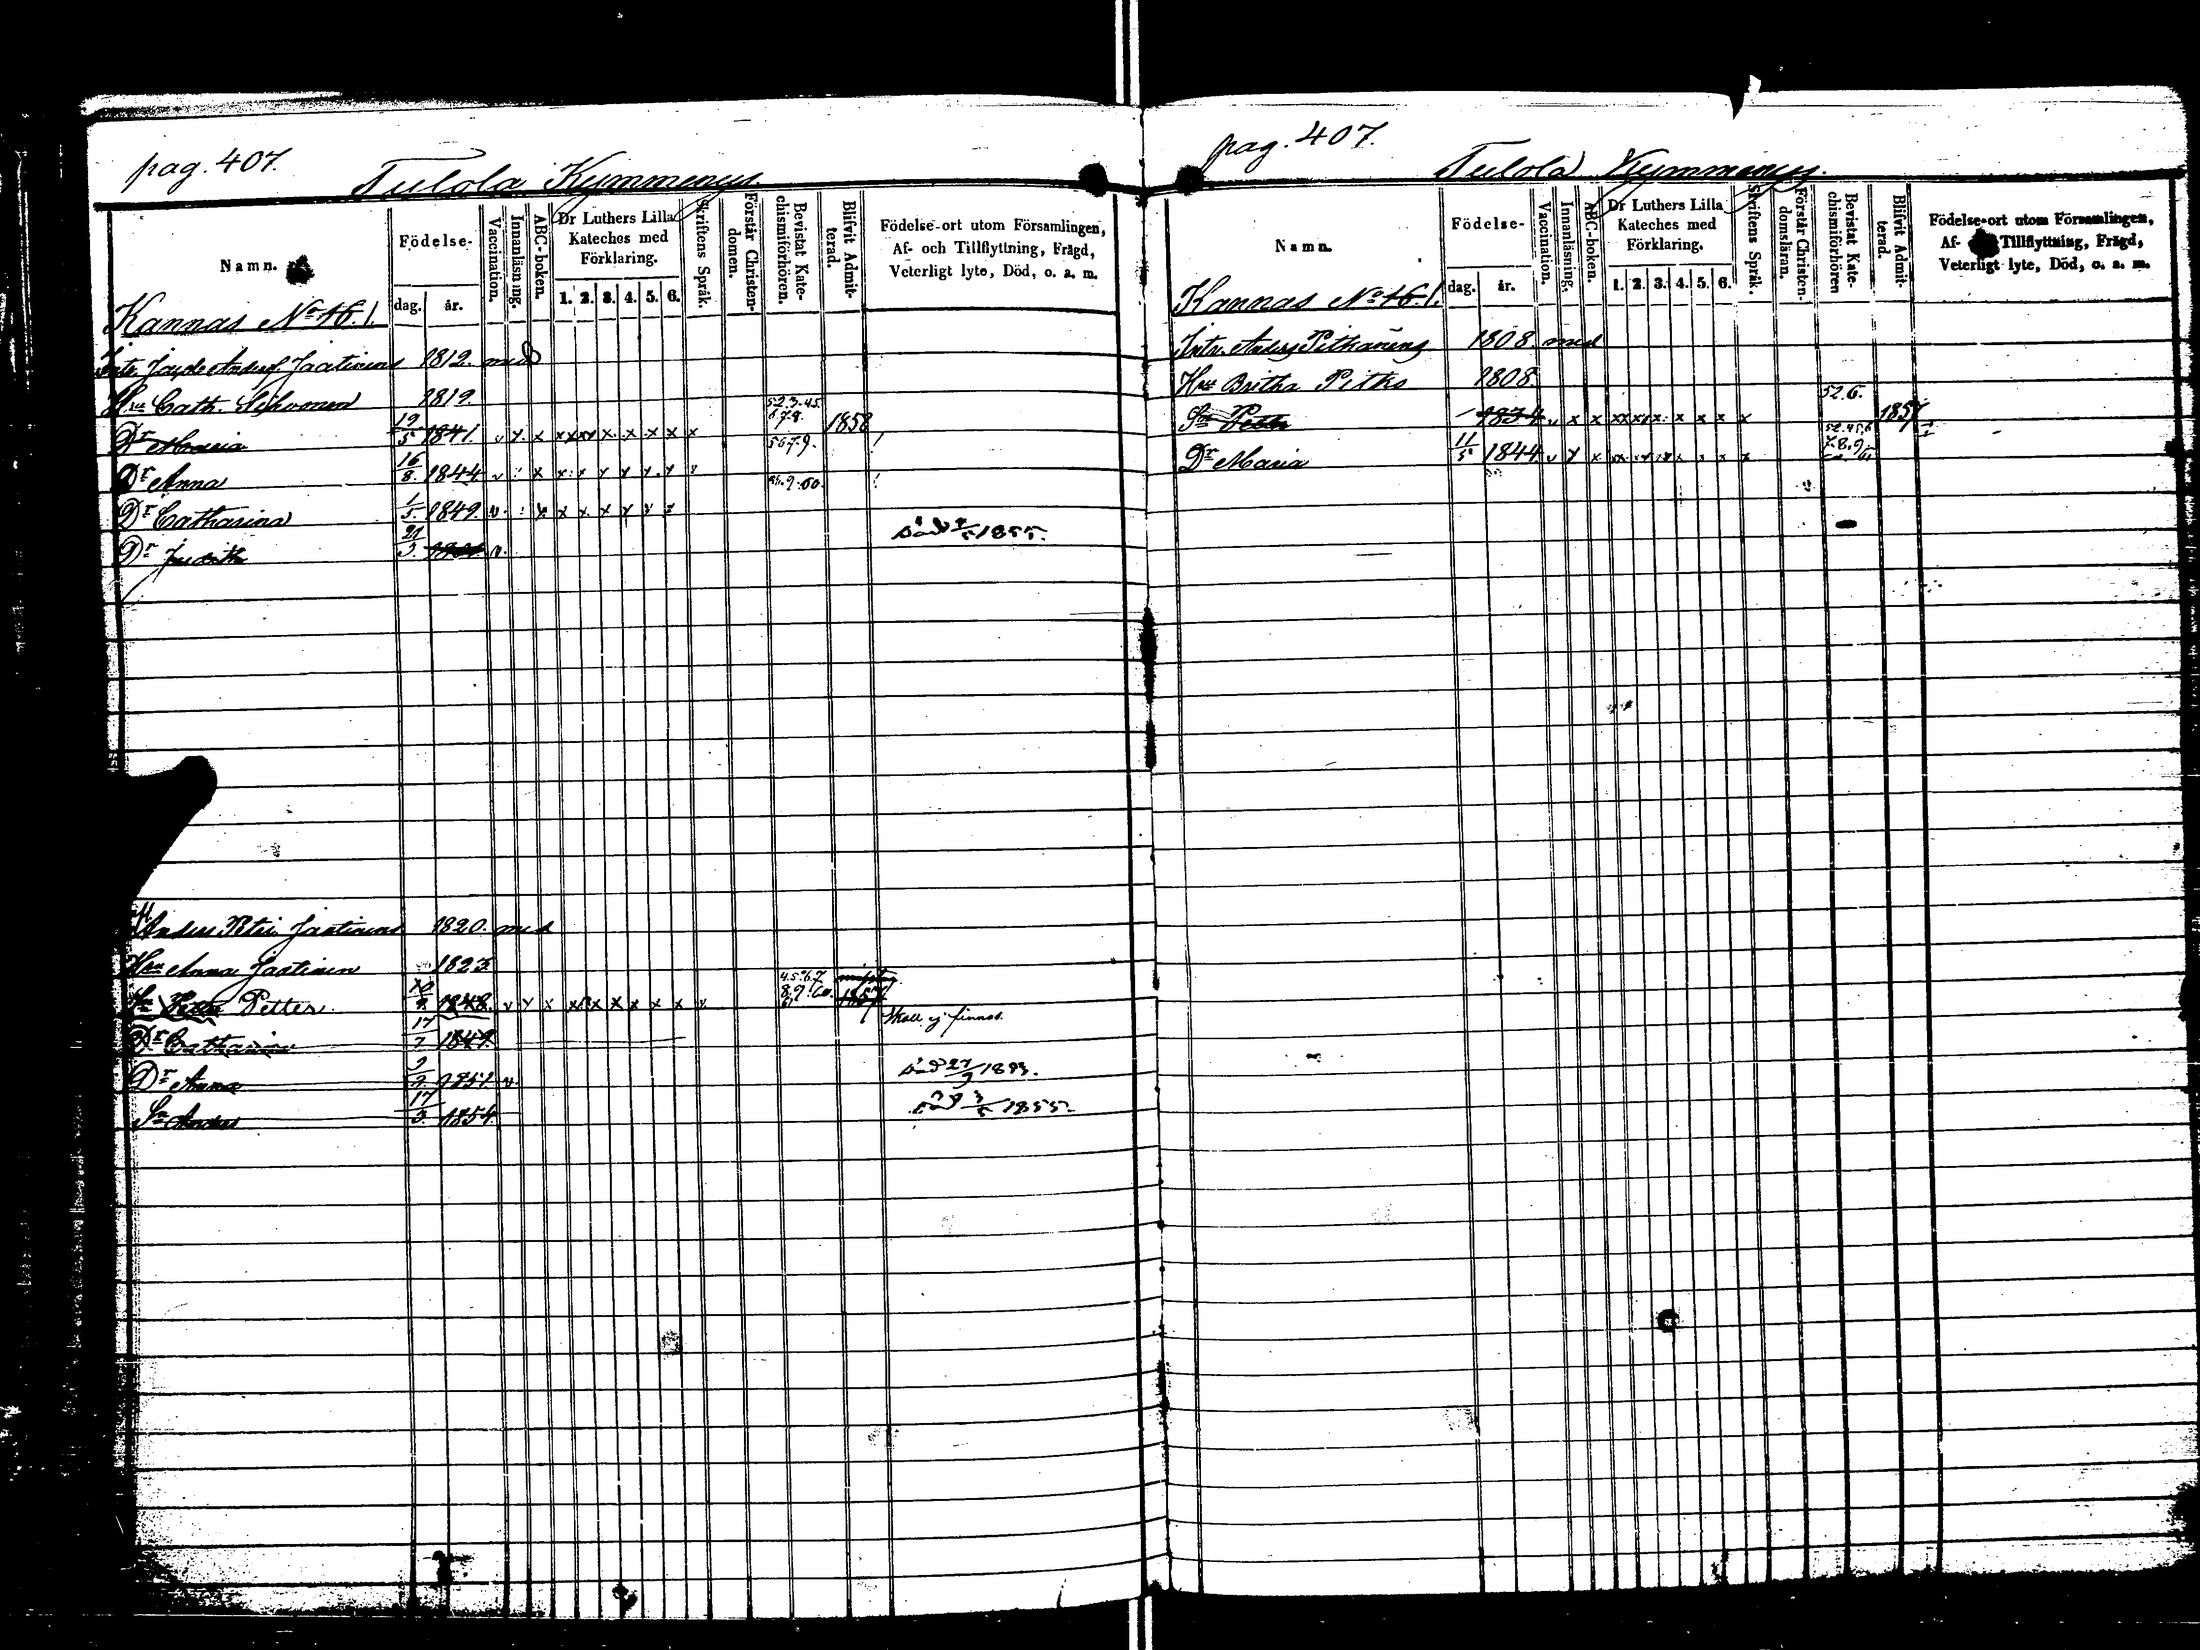 pag. 407.
Tulola Kymmenys.
Namn.
Födelse-
dag. år.
Vaccination.
Innanläsning.
ABC-boken.
Dr Luthers Lilla Kateches med Förklaring.
1. 2. 3. 4. 5. 6.
Skriftens Språk.
Förstår Christendomen.
Bevistat Katechismiförhören.
Blifvit Admitterad.
Födelse-ort utom Församlingen, Af- och Tillflyttning, Frägd, Veterligt lyte, Död, o. a. m.
Kannas No 16. 1.
Anders Jaatinens 1812. med
Hru Cath. Sihvonen 1819.
52.3.45.
6.7.8.
Dr Maria 19/5 1841. v x x x x x x x x x 1858
5679.
Dr Anna 16/8. 1844 v x x x x x x x
9.60.
Dr Catharina 1/5. 1849. v. x x x x x x x
Dr Judith 21/3. v.
död 1855.
Anders Petri Jaatinens 1820. med
Hru Anna Jaatinen 1823
4.5.6.7
8.9.60.
Sn Petter 1848. v x x x x x x x x 1857
Dr Catharina 17/7 1849.
Skall ej finnas.
Dr Anna 9/2. 1851. v.
död 27/9
Sn Anders 17/3. 1854.
död 1855.
pag. 407.
Tulola Kymmenys.
Namn.
Födelse-
dag. år.
Vaccination.
Innanläsning.
ABC-boken.
Dr Luthers Lilla Kateches med Förklaring.
1. 2. 3. 4. 5. 6.
Skriftens Språk.
Förstår Christendomsläran.
Bevistat Katechismiförhören
Blifvit Admitterad.
Födelse-ort utom Församlingen, Af- Tillflyttning, Frägd, Veterligt lyte, Död, o. a. m.
Kannas No 16. 1.
Intr. Anders Pitkänens 1808 med
Hru Britha Pitko 1808.
52.6.
Sn Petter 1834 v x x x x x x x x 1857
Dr Maria 11/5 1844 v x x x x x x
7.8.9.